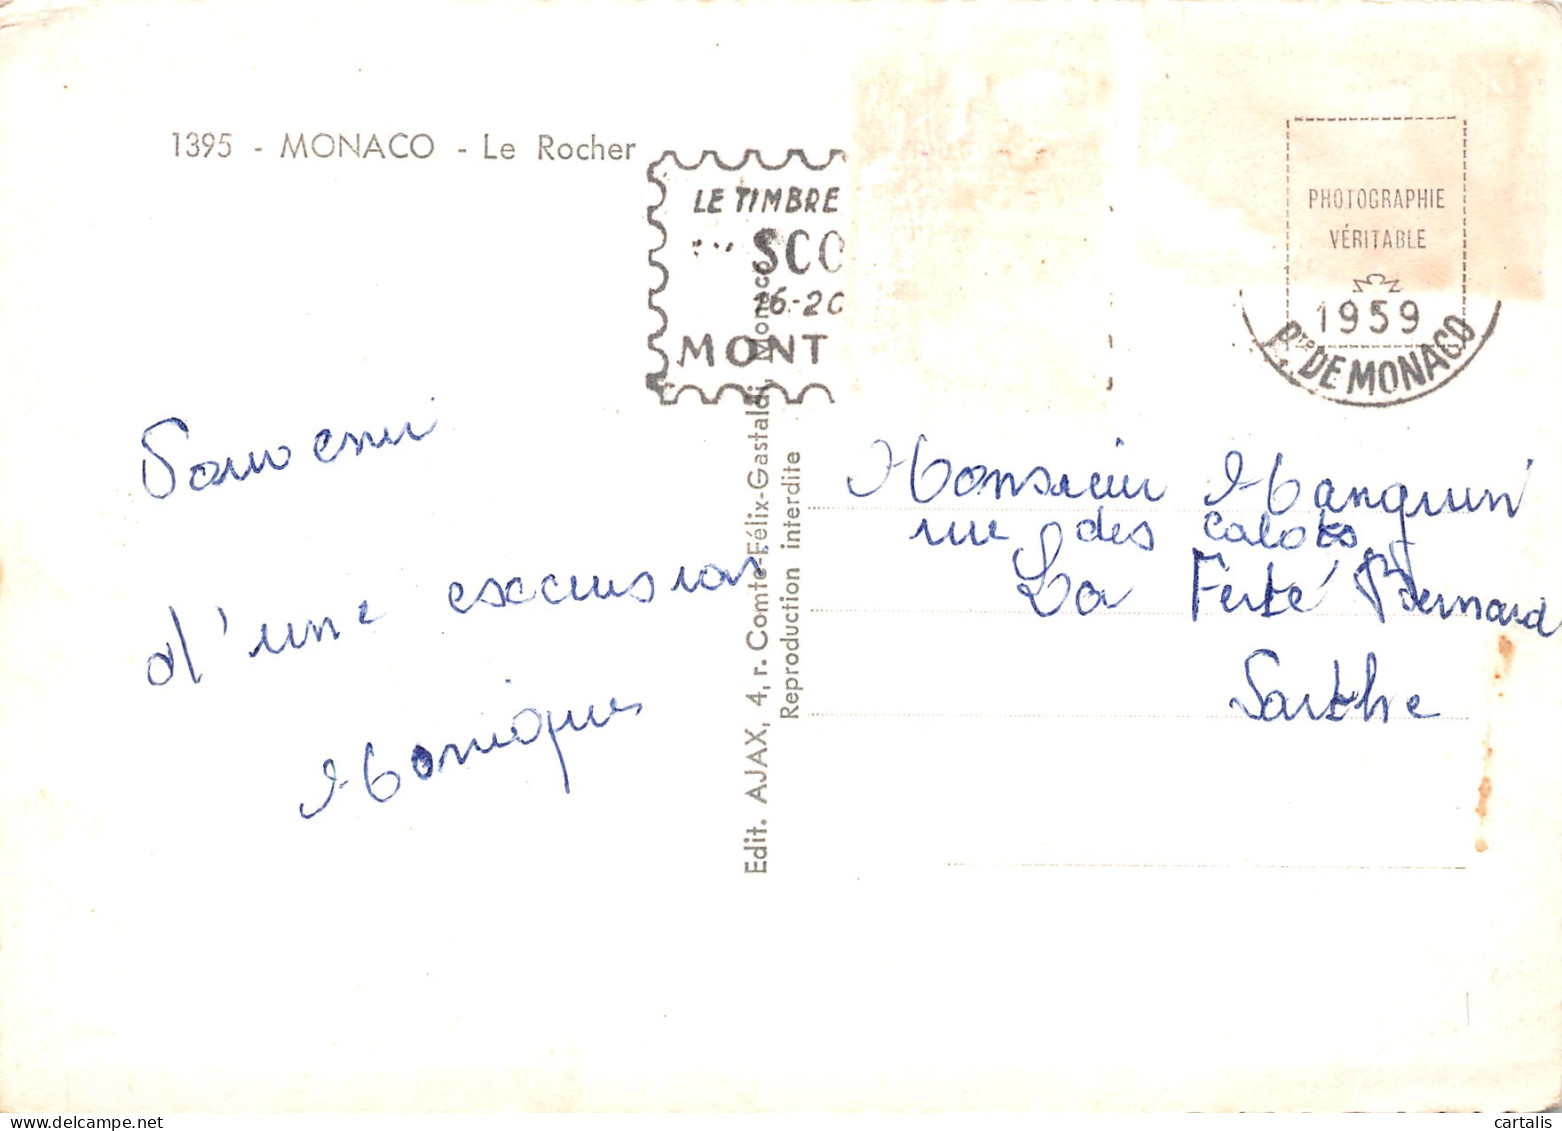 1395 - MONACO - Le Rocher
LE TIMBRE
SCO
16-20
MONT
PHOTOGRAPHIE
VÉRITABLE
1959
PTE DE MONACO
Souvenir
d'une excursion
Monique
Edit. AJAX, 4, r. Comte-Félix-Gastaldi, Monaco
Reproduction interdite
Monsieur Manguin
rue des calots
La Ferté Bernard
Sarthe
cartalis